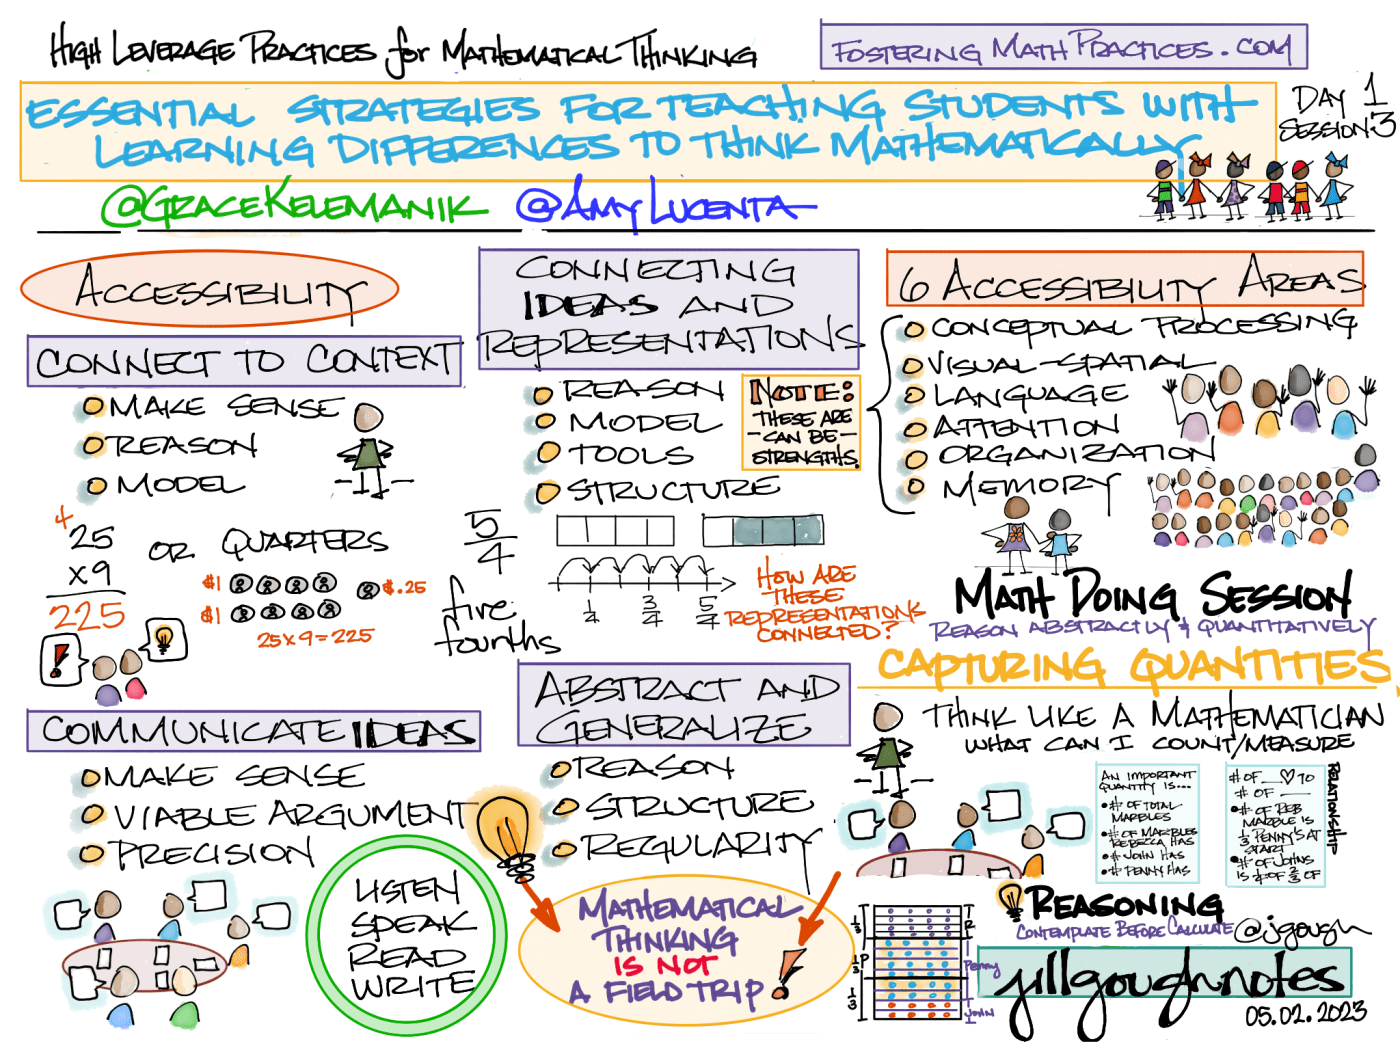 High Leverage Practices for Mathematical Thinking
FosteringMathPractices.com
Essential Strategies for Teaching Students with
Learning Differences to Think Mathematically
Day 1
Session 3
@GraceKelemanik @AmyLucenta
Accessibility
Connect to Context
Make Sense
Reason
Model
4
25
x9
225
or Quarters
$1
$.25
$1
25x9=225
Communicate Ideas
Make Sense
Viable Argument
Precision
Listen
Speak
Read
Write
Connecting
Ideas and
Representations
Reason
Model
Tools
Structure
Note:
These are
-can be-
strengths.
5
4
five
fourths
1/4
3/4
5/4
How are
these
representations
connected?
Abstract and
Generalize
Reason
Structure
Regularity
Mathematical
Thinking
is not
a field trip!
6 Accessibility Areas
Conceptual Processing
Visual-Spatial
Language
Attention
Organization
Memory
Math Doing Session
Reason Abstractly & Quantitatively
Capturing Quantities
Think like a Mathematician
What can I count/measure
An important
quantity is...
# of total
marbles
# of marbles
Rebecca has
# John has
# Penny has
# of __ ♡ to
# of __
Relationship
# of Reb
marble is
1/3 Penny's at
start
# of Johns
is 1/2 of 2/3 of
1/3
R
P
1/3
Penny
1/3
John
Reasoning
Contemplate Before Calculate
@jgough
jillgoughnotes
05.02.2023